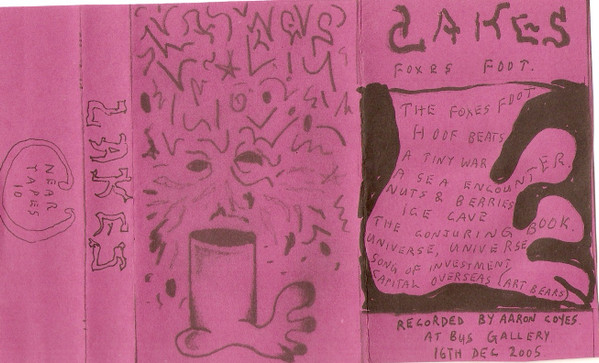 NEAR
TAPES
10
LAKES
LAKES
FOXES FOOT.
THE FOXES FOOT
HOOF BEATS
A TINY WAR
A SEA ENCOUNTER.
NUTS & BERRIES
ICE CAVE
THE CONJURING BOOK.
UNIVERSE, UNIVERSE
SONG OF INVESTMENT,
CAPITAL OVERSEAS (ART BEARS)
RECORDED BY AARON COYES.
AT BUS GALLERY
16TH DEC 2005